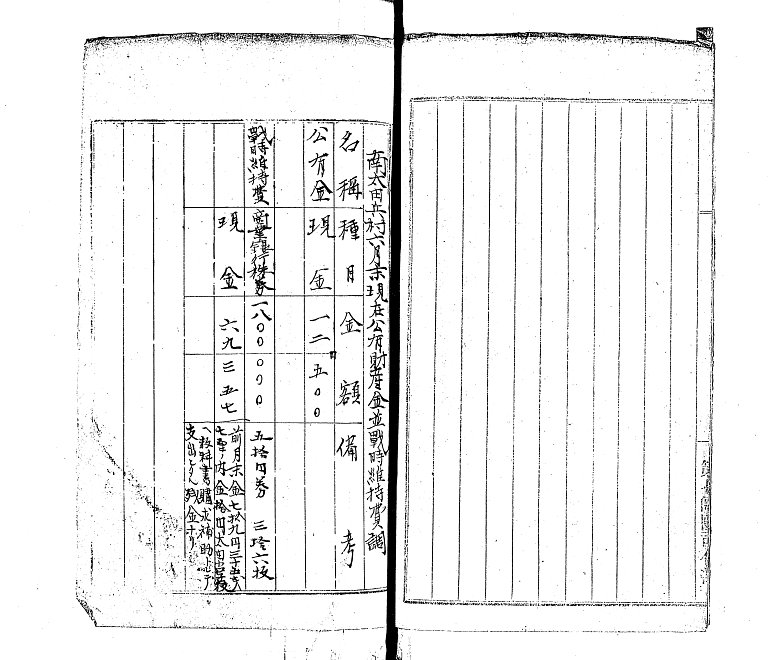 南太田兵村六月末現在公有財産金並戰時維持費調
名稱 種目 金額 備考
公有金 現金 一二五〇〇
戰時維持費 商業銀行株券 一八〇〇〇〇〇 五拾円券 三拾六枚
現金 六九三五七
前月末金七拾九円三十五
七厘ノ内金拾円太田
ヘ教科書購求補助トシテ
支出セル残金ナリ